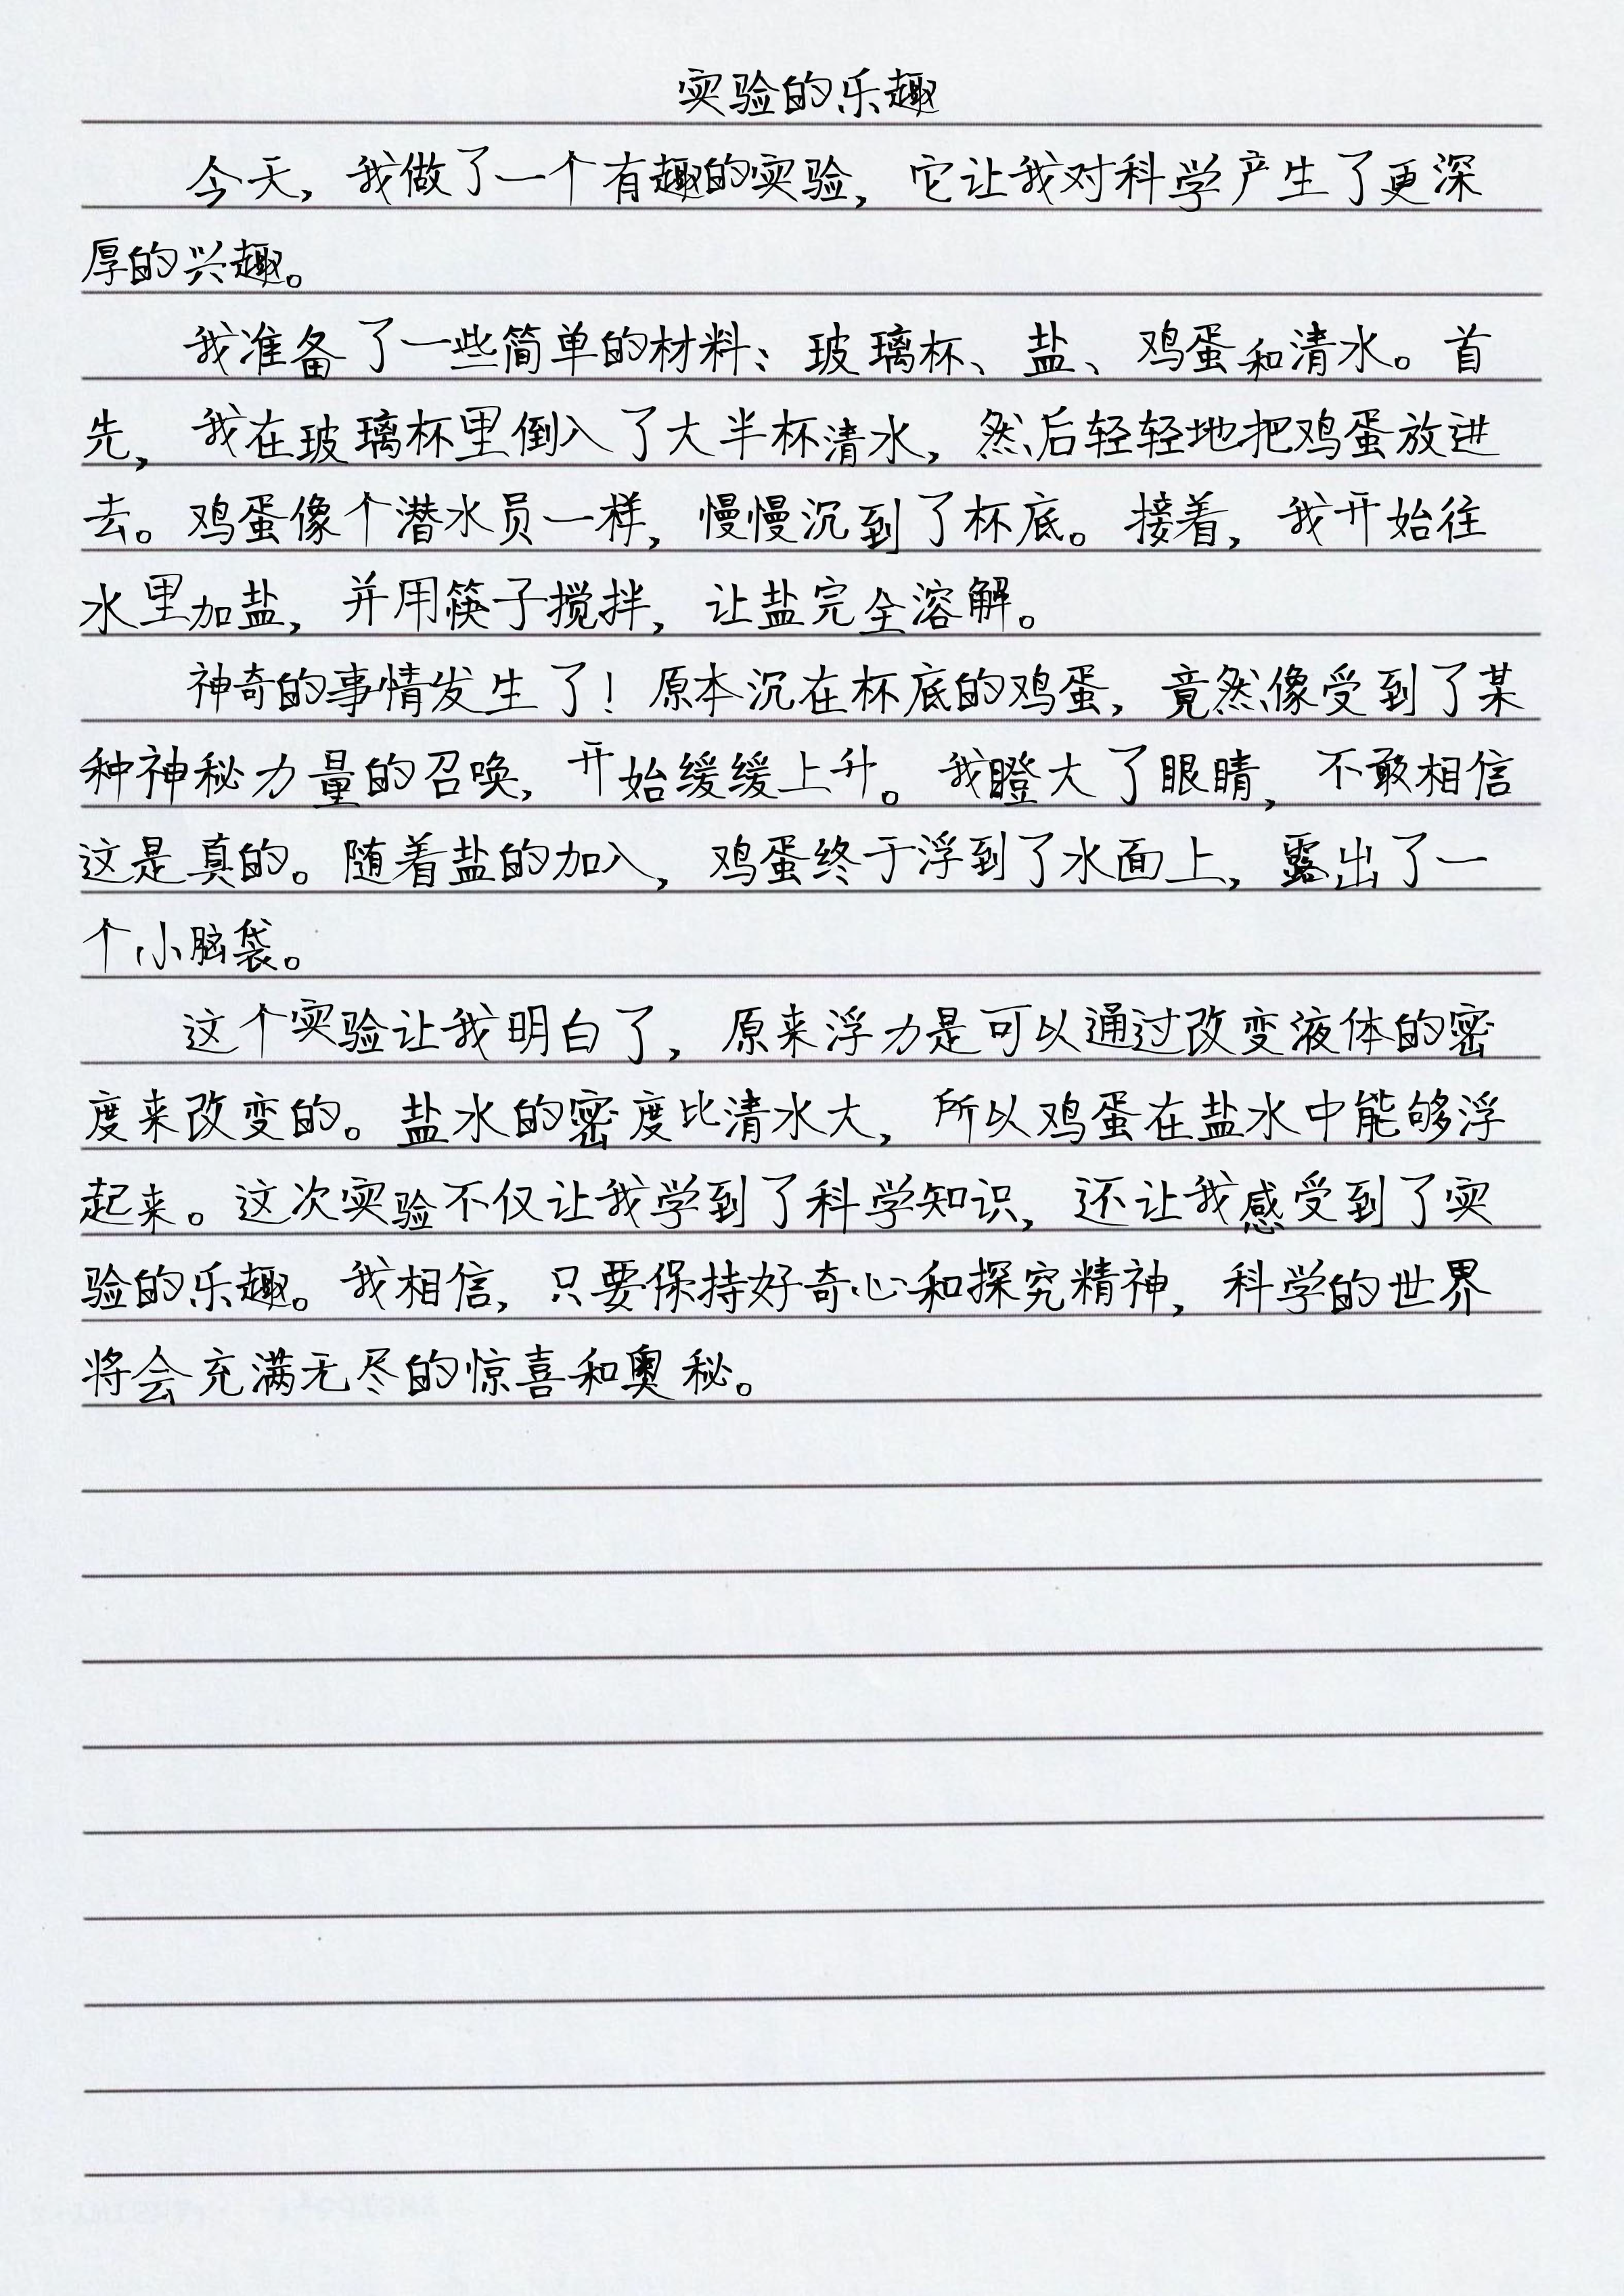 实验的乐趣
今天，我做了一个有趣的实验，它让我对科学产生了更深
厚的兴趣。
我准备了一些简单的材料：玻璃杯、盐、鸡蛋和清水。首
先，我在玻璃杯里倒入了大半杯清水，然后轻轻地把鸡蛋放进
去。鸡蛋像个潜水员一样，慢慢沉到了杯底。接着，我开始往
水里加盐，并用筷子搅拌，让盐完全溶解。
神奇的事情发生了！原本沉在杯底的鸡蛋，竟然像受到了某
种神秘力量的召唤，开始缓缓上升。我瞪大了眼睛，不敢相信
这是真的。随着盐的加入，鸡蛋终于浮到了水面上，露出了一
个小脑袋。
这个实验让我明白了，原来浮力是可以通过改变液体的密
度来改变的。盐水的密度比清水大，所以鸡蛋在盐水中能够浮
起来。这次实验不仅让我学到了科学知识，还让我感受到了实
验的乐趣。我相信，只要保持好奇心和探究精神，科学的世界
将会充满无尽的惊喜和奥秘。